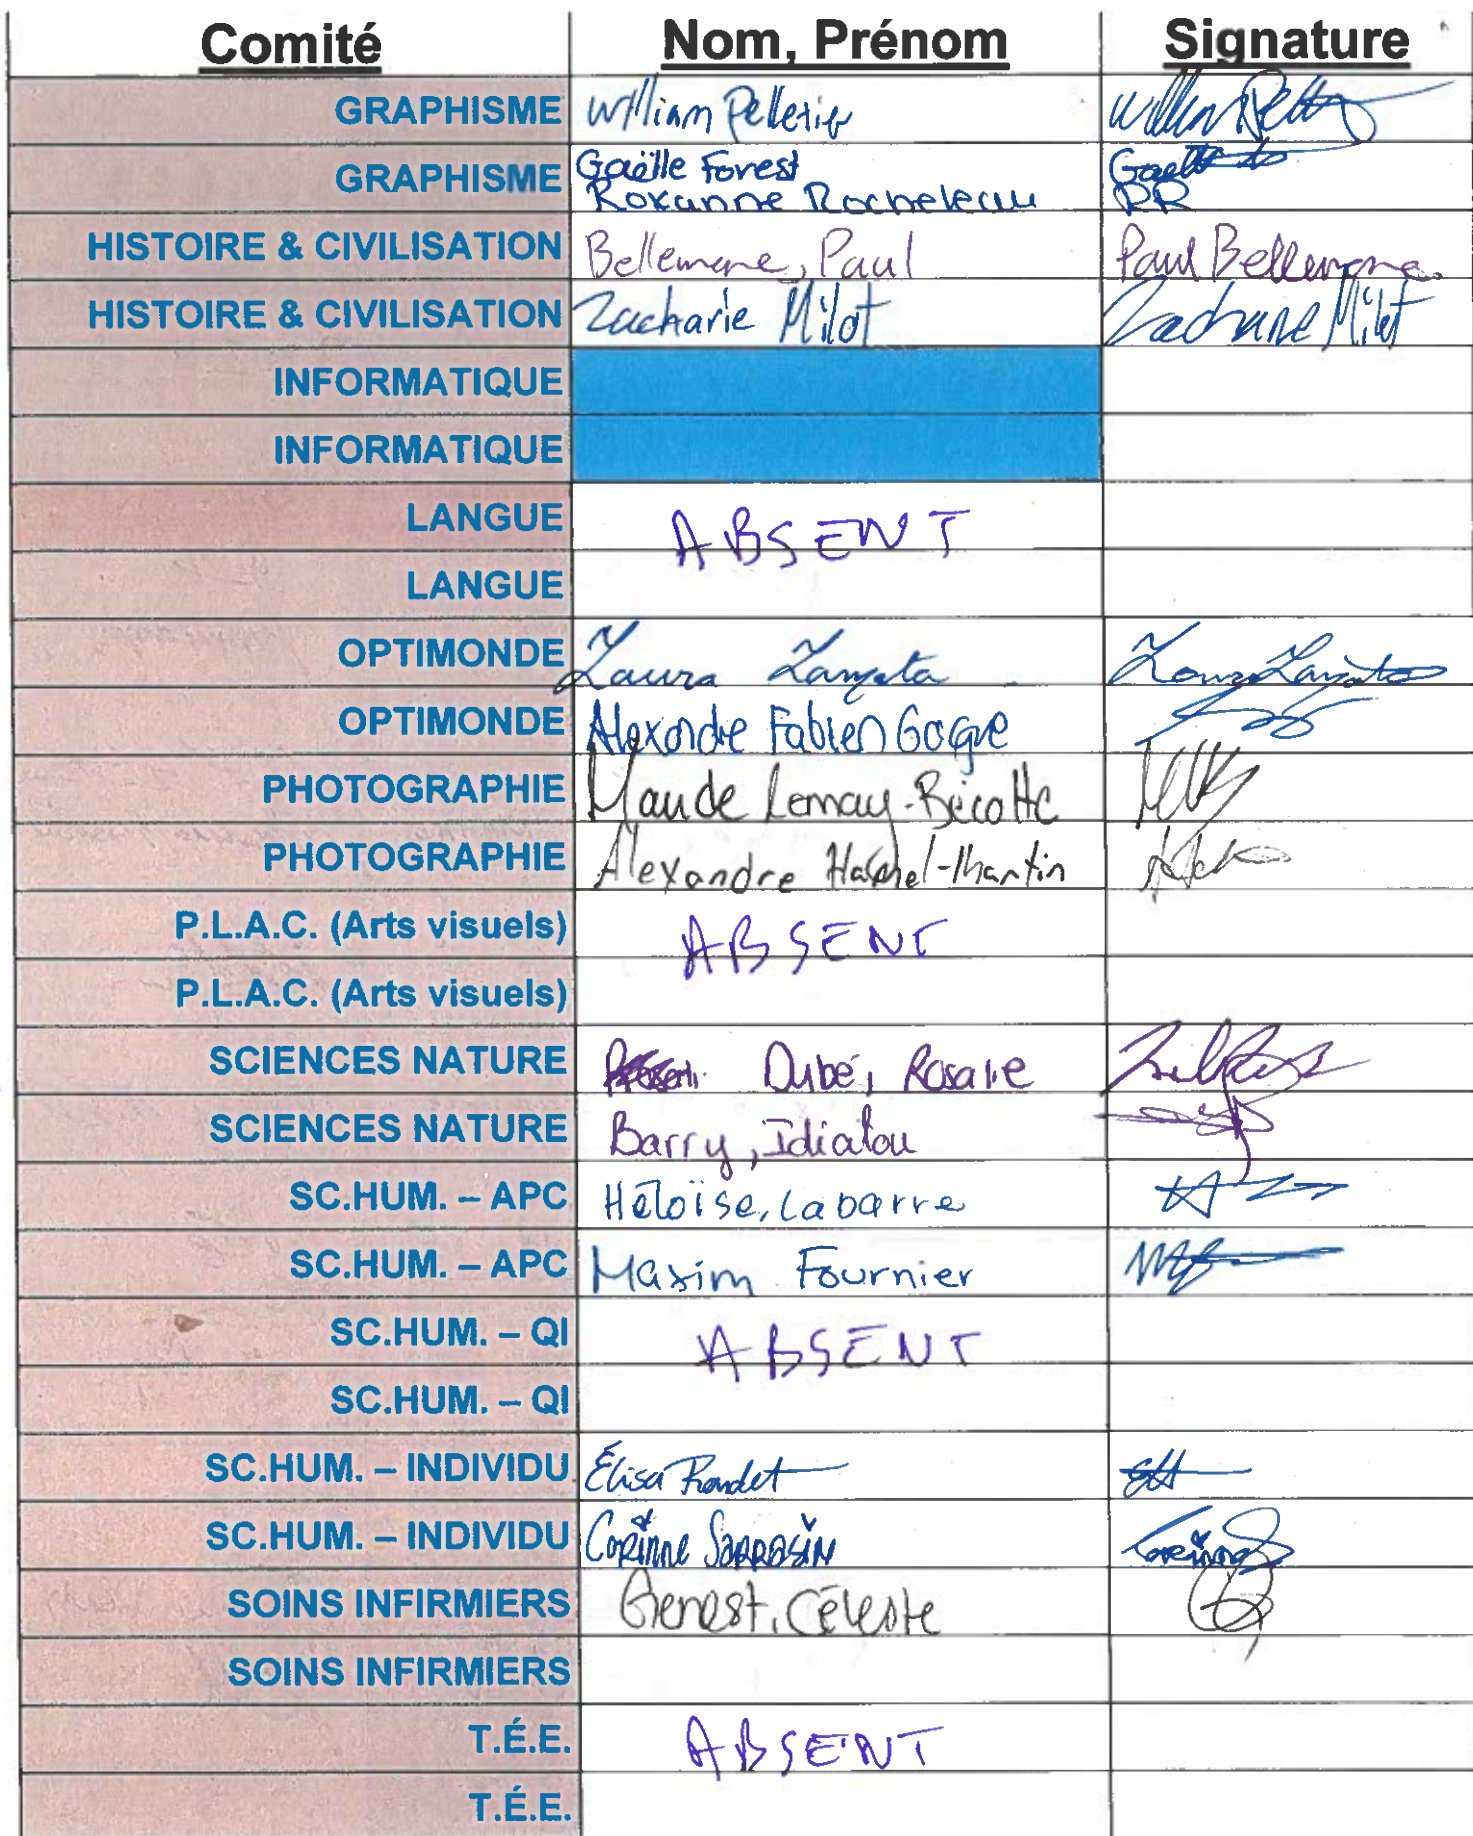 Comité Nom, Prénom Signature
GRAPHISME William Pelletier
GRAPHISME Gaëlle Forest Gaelle
Roxanne Rocheleau RR
HISTOIRE & CIVILISATION Bellemare, Paul Paul Bellemare
HISTOIRE & CIVILISATION Zacharie Milot Zacharie Milot
INFORMATIQUE
INFORMATIQUE
LANGUE ABSENT
LANGUE
OPTIMONDE Laura
OPTIMONDE Alexandre Fabien Gagne
PHOTOGRAPHIE Maude Lemay-Bécotte
PHOTOGRAPHIE Alexandre Hamel-Martin
P.L.A.C. (Arts visuels) ABSENT
P.L.A.C. (Arts visuels)
SCIENCES NATURE Dubé, Rosalie
SCIENCES NATURE Barry, Idiatou
SC.HUM. – APC Héloïse, Labarre
SC.HUM. – APC Maxim Fournier
SC.HUM. – QI ABSENT
SC.HUM. – QI
SC.HUM. – INDIVIDU Élisa
SC.HUM. – INDIVIDU Corinne Sarrasin
SOINS INFIRMIERS Genest, Céleste
SOINS INFIRMIERS
T.É.E. ABSENT
T.É.E.